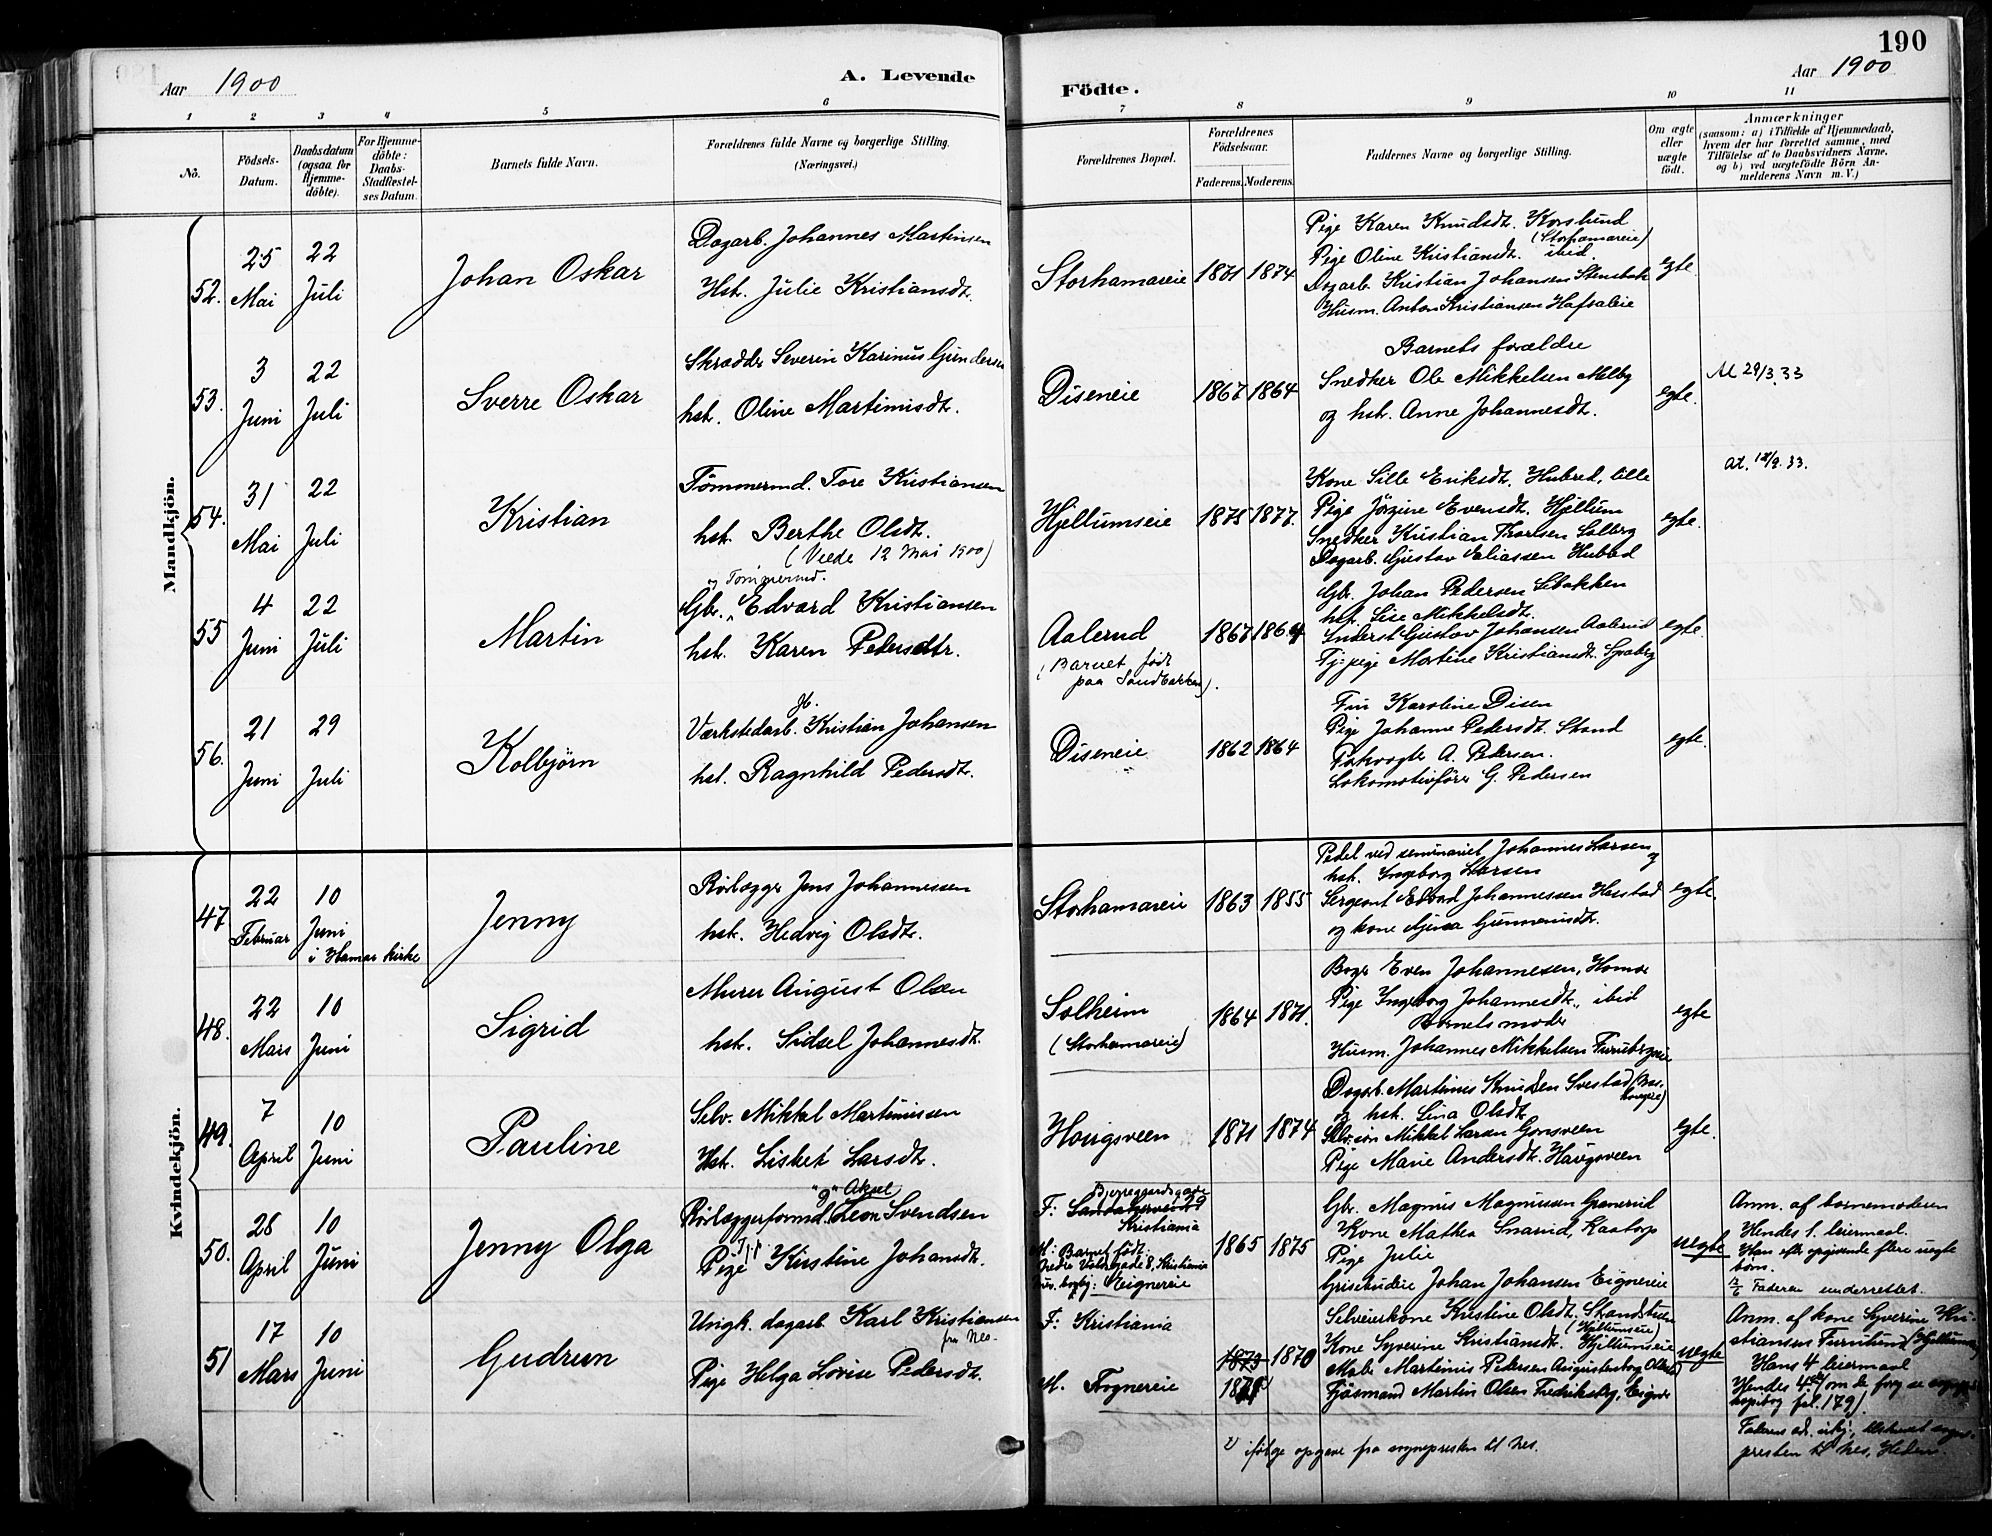 190
Aar 1900
A. Levende
Födte.
Aar 1900
1 2 3 4 5 6 7 8 9 10 11
No.
Födsels-
Datum.
Daabsdatum
(ogsaa for
Hjemme-
döbte).
For Hjemme-
döbte:
Daabs-
Stadfæstel-
ses Datum.
Barnets fulde Navn.
Forældrenes fulde Navne og borgerlige Stilling.
(Næringsvei.)
Forældrenes Bopæl.
Forældrenes
Födselsaar.
Faderens. Moderens.
Faddernes Navne og borgerlige Stilling.
Om ægte
eller
uægte
födt.
Anmærkninger
(saasom: a) i Tilfælde af Hjemmedaab,
hvem der har forrettet samme, med
Tilföielse af to Daabsvidners Navne,
og b) ved uægtefödte Börn An-
melderens Navn m. V.)
Mandkjön.
52.
25
Mai
22
Juli
Johan Oskar
Dagarb. Johannes Martinsen
Hst. Julie Kristiansdt.
Storhamareie
1871 1874
Pige Karen Knudsdt. Korslund
(Storhamareie)
Pige Oline Kristiansdt. ibid.
Dagarb. Kristian Johansen Stensbak
Husm. Anton Kristiansen Hafsaleie
egte.
53.
3
Juni
22
Juli
Sverre Oskar
Skrædder Severin Karinus Gundersen
hst. Oline Martinusdt.
Diseneie
1867 1864
Barnets forældre
Snedker Ole Mikkelsen Melby
og hst. Anne Johannesdt.
egte.
At 29/3.33
54.
31
Mai
22
Juli
Kristian
Tömmermd. Tore Kristiansen
hst. Berthe Olsdt.
(Viede 12 Mai 1900)
Hjellumseie
1875 1877.
Kone Sille Eriksdt. Hubred, lille
Pige Jörgine Evensdt. Hjellum
Snedker Kristian Thorsen Solberg
Dagarb. Gustav Eliassen Hubred
egte.
at. 18/9.33.
55
4
Juni
22
Juli
Martin
og Tömmermd.
Gbr. Edvard Kristiansen
hst. Karen Pedersdtr.
Aalerud
(Barnet född
paa Sandbakken).
1867 1864
Gbr. Johan Pedersen Sebakken
hst. Lise Mikkelsdt.
Inderst Gustav Johansen Aalerud
Tj: pige Martine Kristiansdt. Spaberg
egte.
56.
21
Juni
29
Juli
Kolbjörn
Værkstedarb. Kristian Johansen
hst. Ragnhild Pedersdt.
Diseneie
1862 1864
Fru Karoline Disen
Pige Johanne Pedersdt. Strand
A. Petersen.
Lokomotivförer G. Pedersen
egte.
Kvindekjön.
47
22
Februar
10
Juni
i Hamar kirke
Jenny
Rörlægger Jens Johannessen
hst. Hedvig Olsdt.
Storhamareie
1863 1855
Pedel ved seminariet Johannes Larsen og
hst. Ingeborg Larsen
Sergeant Edvard Johannessen Harstad
og kone Gunnerusdt.
egte.
48.
22
Mars
10
Juni
Sigrid
Murer August Olsen
hst. Sidsel Johannesdt.
Solheim
(Storhamareie)
1864 1871.
Bager Even Johannesen, Hamar
Pige Ingeborg Johannesdt., ibid
Barnets moder
Husm. Johannes Mikkelsen Furubergeie
egte
49.
7
April
10
Juni
Pauline
Selv. Mikkel Martinussen
Hst. Lisbet Larsdt.
Hougsveen
1871 1874
Dagarb. Martinus Knudsen Svestad
og hst. Lina Olsdt.
Selv.sön Mikkel Larsen Gonsveen
Pige Marie Andersdt. Haugsveen
egte.
50.
28
April
10
Juni
Jenny Olga
"g" Aksel
Rörlæggerformd. Leon Svendsen
Pige Kirstine Johansdt.
F: Bjerregaardsgade 29
Kristiania
M: Barnet födt:
Nedre Voldgade 8, Kristiania
Eignereie
1865 1875
Gbr. Magnus Magnussen Granerud
Kone Mathea Snarud, Kaatorp
Pige Julie
Johan Johansen Eignereie
uegte
Anm. af barnemoderen
Hendes 1. leiermaal.
Han efter opgivende flere uegte
börn.
Faderen underrettet.
51
17
Mars
10
Juni
Gudrun
Ungk. dagarb. Karl Kristiansen
fra Nes.
Pige Helga Lovise Pedersdt.
F: Kristiania
M. Fognereie
1873 1870
Selveierkone Kristine Olsdt. Strandstuen
(Hjellumseie)
Kone Syverine Kristiansdt. Hjellumseie
Maler Martinus Pedersen Augustenborg
Fjösmand Martin Olsen Fredriksberg, Eigner
uegte
Anm. af kone Syverine Kri-
stiansen Furutun (Hjellumseie)
Hans 4 leiermaal
Hendes 4de (om de forrige se
fol. 179).
presten til Nes, Hedem.
1) ifölge opgave fra sognepresten til Nes.